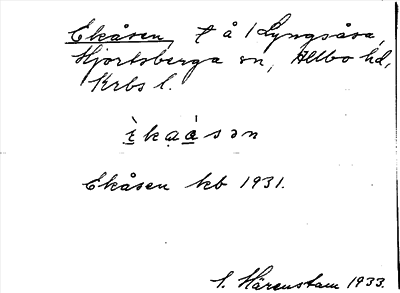 Ekåsen, t å 1 Lyngsåsa,
Hjortsberga sn, Allbo hd,
Krbs l.
è̱kạa̱̍sən
Ekåsen kb 1931.
S. Härenstam 1933.